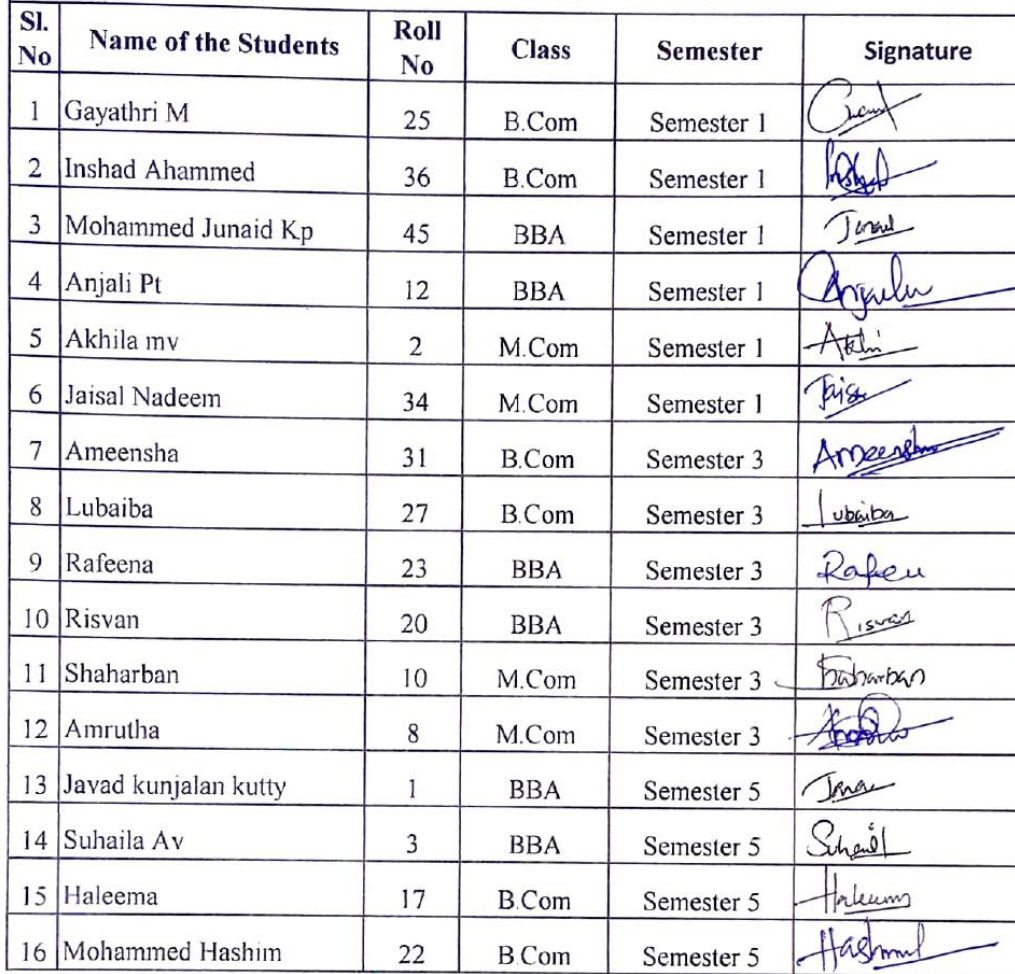 Sl. No Name of the Students Roll No Class Semester Signature
1 Gayathri M 25 B.Com Semester 1
2 Inshad Ahammed 36 B.Com Semester 1
3 Mohammed Junaid Kp 45 BBA Semester 1
4 Anjali Pt 12 BBA Semester 1
5 Akhila mv 2 M.Com Semester 1 Akhi
6 Jaisal Nadeem 34 M.Com Semester 1
7 Ameensha 31 B.Com Semester 3 Ameensha
8 Lubaiba 27 B.Com Semester 3 Lubaiba
9 Rafeena 23 BBA Semester 3
10 Risvan 20 BBA Semester 3 Risvan
11 Shaharban 10 M.Com Semester 3
12 Amrutha 8 M.Com Semester 3
13 Javad kunjalan kutty 1 BBA Semester 5
14 Suhaila Av 3 BBA Semester 5
15 Haleema 17 B.Com Semester 5
16 Mohammed Hashim 22 B.Com Semester 5